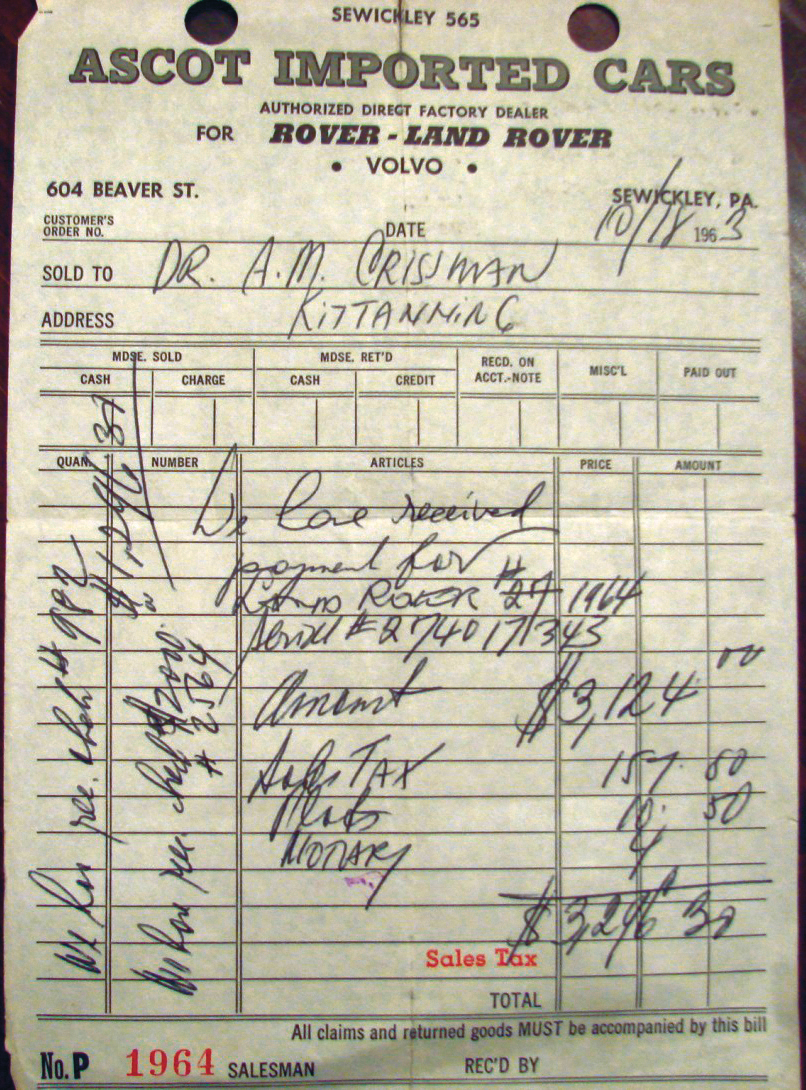 SEWICKLEY 565
ASCOT IMPORTED CARS
AUTHORIZED DIRECT FACTORY DEALER
FOR ROVER - LAND ROVER
• VOLVO •
604 BEAVER ST. SEWICKLEY, PA.
CUSTOMER'S ORDER NO. DATE 10/18 1963
SOLD TO DR. A.M. CRISSMAN
ADDRESS KITTANNING
MDSE. SOLD MDSE. RET'D RECD. ON ACCT.-NOTE MISC'L PAID OUT
CASH CHARGE CASH CREDIT
QUAN. NUMBER ARTICLES PRICE AMOUNT
We have received
payment for
LAND ROVER # 27 1964
Serial # 274017343
Amount $3,124 00
Sales TAX 157. 80
Plates 10. 50
NOTARY 4
$3,296 30
Sales Tax
TOTAL
We have rec. check # 982 $1,296.30
We have rec. check $2000.00
# 2564
All claims and returned goods MUST be accompanied by this bill
No. P 1964 SALESMAN REC'D BY